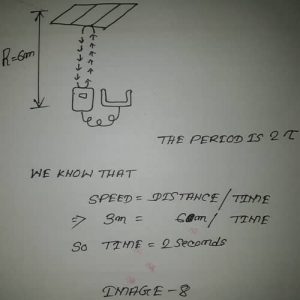 R=6cm
THE PERIOD IS 2 τ
WE KNOW THAT
SPEED = DISTANCE / TIME
⇒ 3m = 6m / TIME
SO TIME = 2 Seconds
IMAGE-8